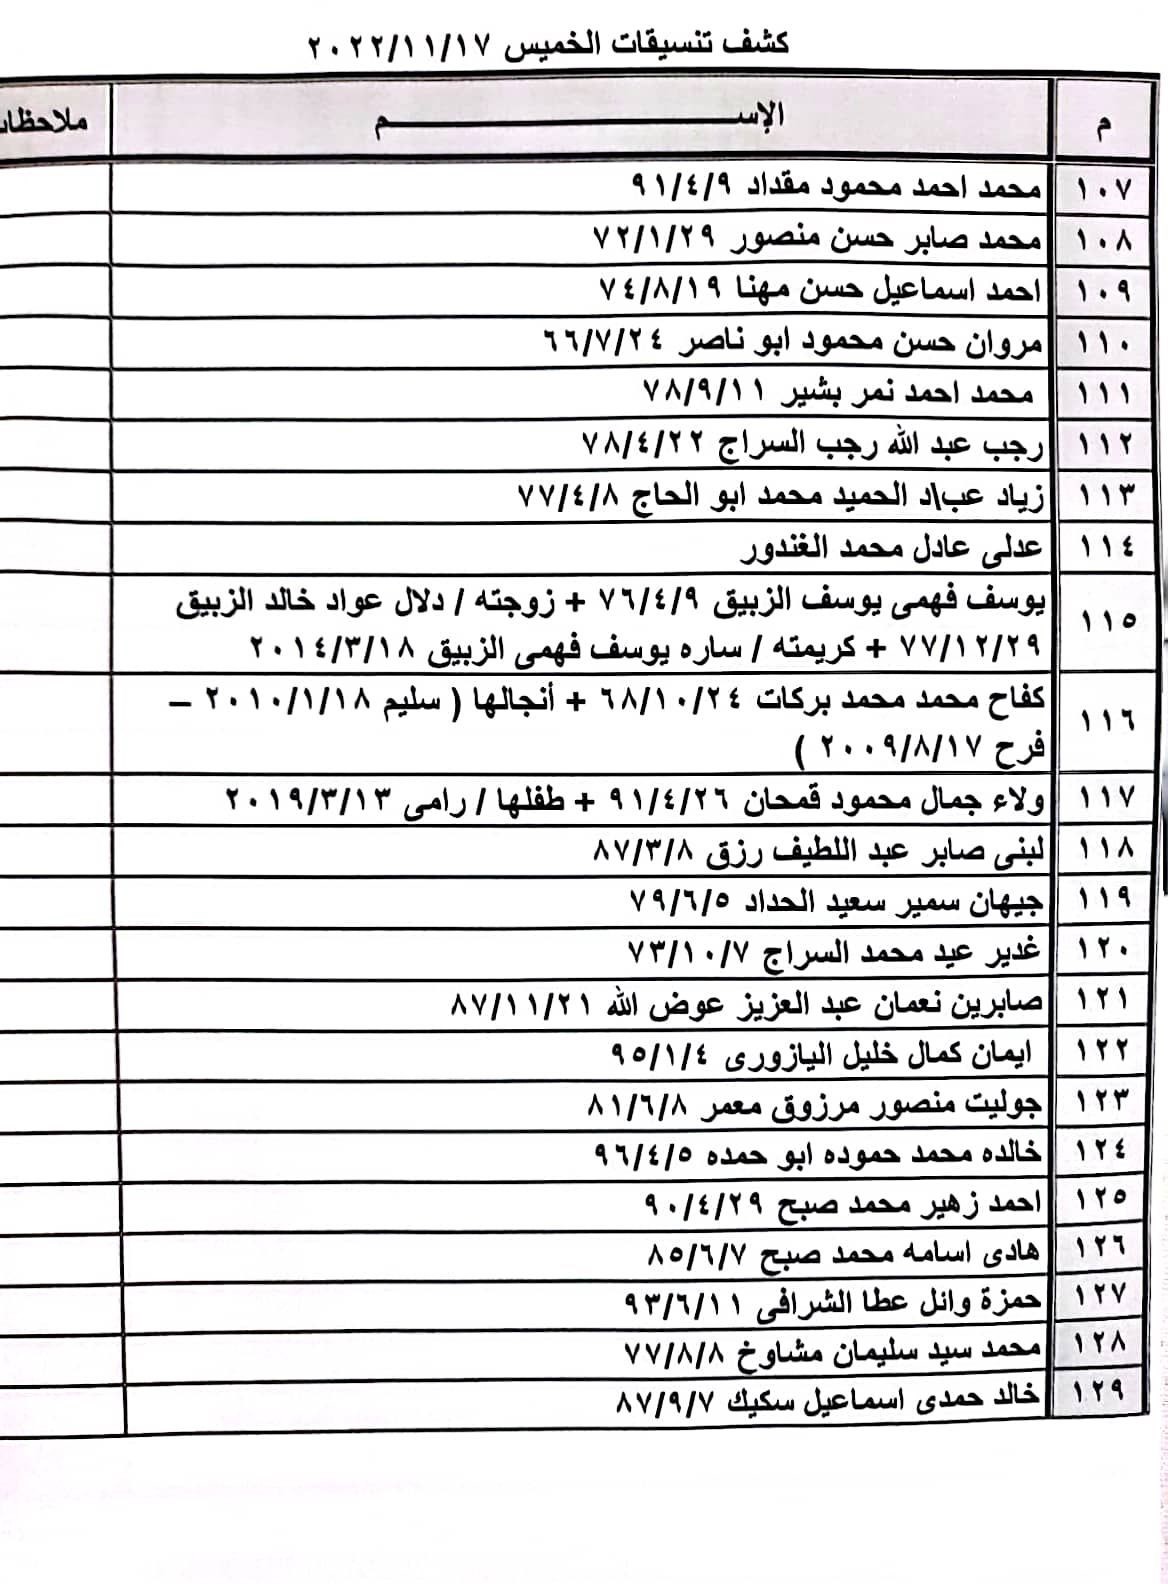 كشف تنسيقات الخميس ٢٠٢٢/١١/١٧
م الإســـــــــــــم ملاحظات
١٠٧ محمد احمد محمود مقداد ٩١/٤/٩
١٠٨ محمد صابر حسن منصور ٧٢/١/٢٩
١٠٩ احمد اسماعيل حسن مهنا ٧٤/٨/١٩
١١٠ مروان حسن محمود ابو ناصر ٦٦/٧/٢٤
١١١ محمد احمد نمر بشير ٧٨/٩/١١
١١٢ رجب عبد الله رجب السراج ٧٨/٤/٢٢
١١٣ زياد عب\د الحميد محمد ابو الحاج ٧٧/٤/٨
١١٤ عدلى عادل محمد الغندور
١١٥ يوسف فهمى يوسف الزبيق ٧٦/٤/٩ + زوجته / دلال عواد خالد الزبيق
٧٧/١٢/٢٩ + كريمته / ساره يوسف فهمى الزبيق ٢٠١٤/٣/١٨
١١٦ كفاح محمد محمد بركات ٦٨/١٠/٢٤ + أنجالها ( سليم ٢٠١٠/١/١٨ –
فرح ٢٠٠٩/٨/١٧ )
١١٧ ولاء جمال محمود قمحان ٩١/٤/٢٦ + طفلها / رامى ٢٠١٩/٣/١٣
١١٨ لبنى صابر عبد اللطيف رزق ٨٧/٣/٨
١١٩ جيهان سمير سعيد الحداد ٧٩/٦/٥
١٢٠ غدير عيد محمد السراج ٧٣/١٠/٧
١٢١ صابرين نعمان عبد العزيز عوض الله ٨٧/١١/٢١
١٢٢ ايمان كمال خليل اليازورى ٩٥/١/٤
١٢٣ جوليت منصور مرزوق معمر ٨١/٦/٨
١٢٤ خالده محمد حموده ابو حمده ٩٦/٤/٥
١٢٥ احمد زهير محمد صبح ٩٠/٤/٢٩
١٢٦ هادى اسامه محمد صبح ٨٥/٦/٧
١٢٧ حمزة وائل عطا الشرافى ٩٣/٦/١١
١٢٨ محمد سيد سليمان مشاوخ ٧٧/٨/٨
١٢٩ خالد حمدى اسماعيل سكيك ٨٧/٩/٧